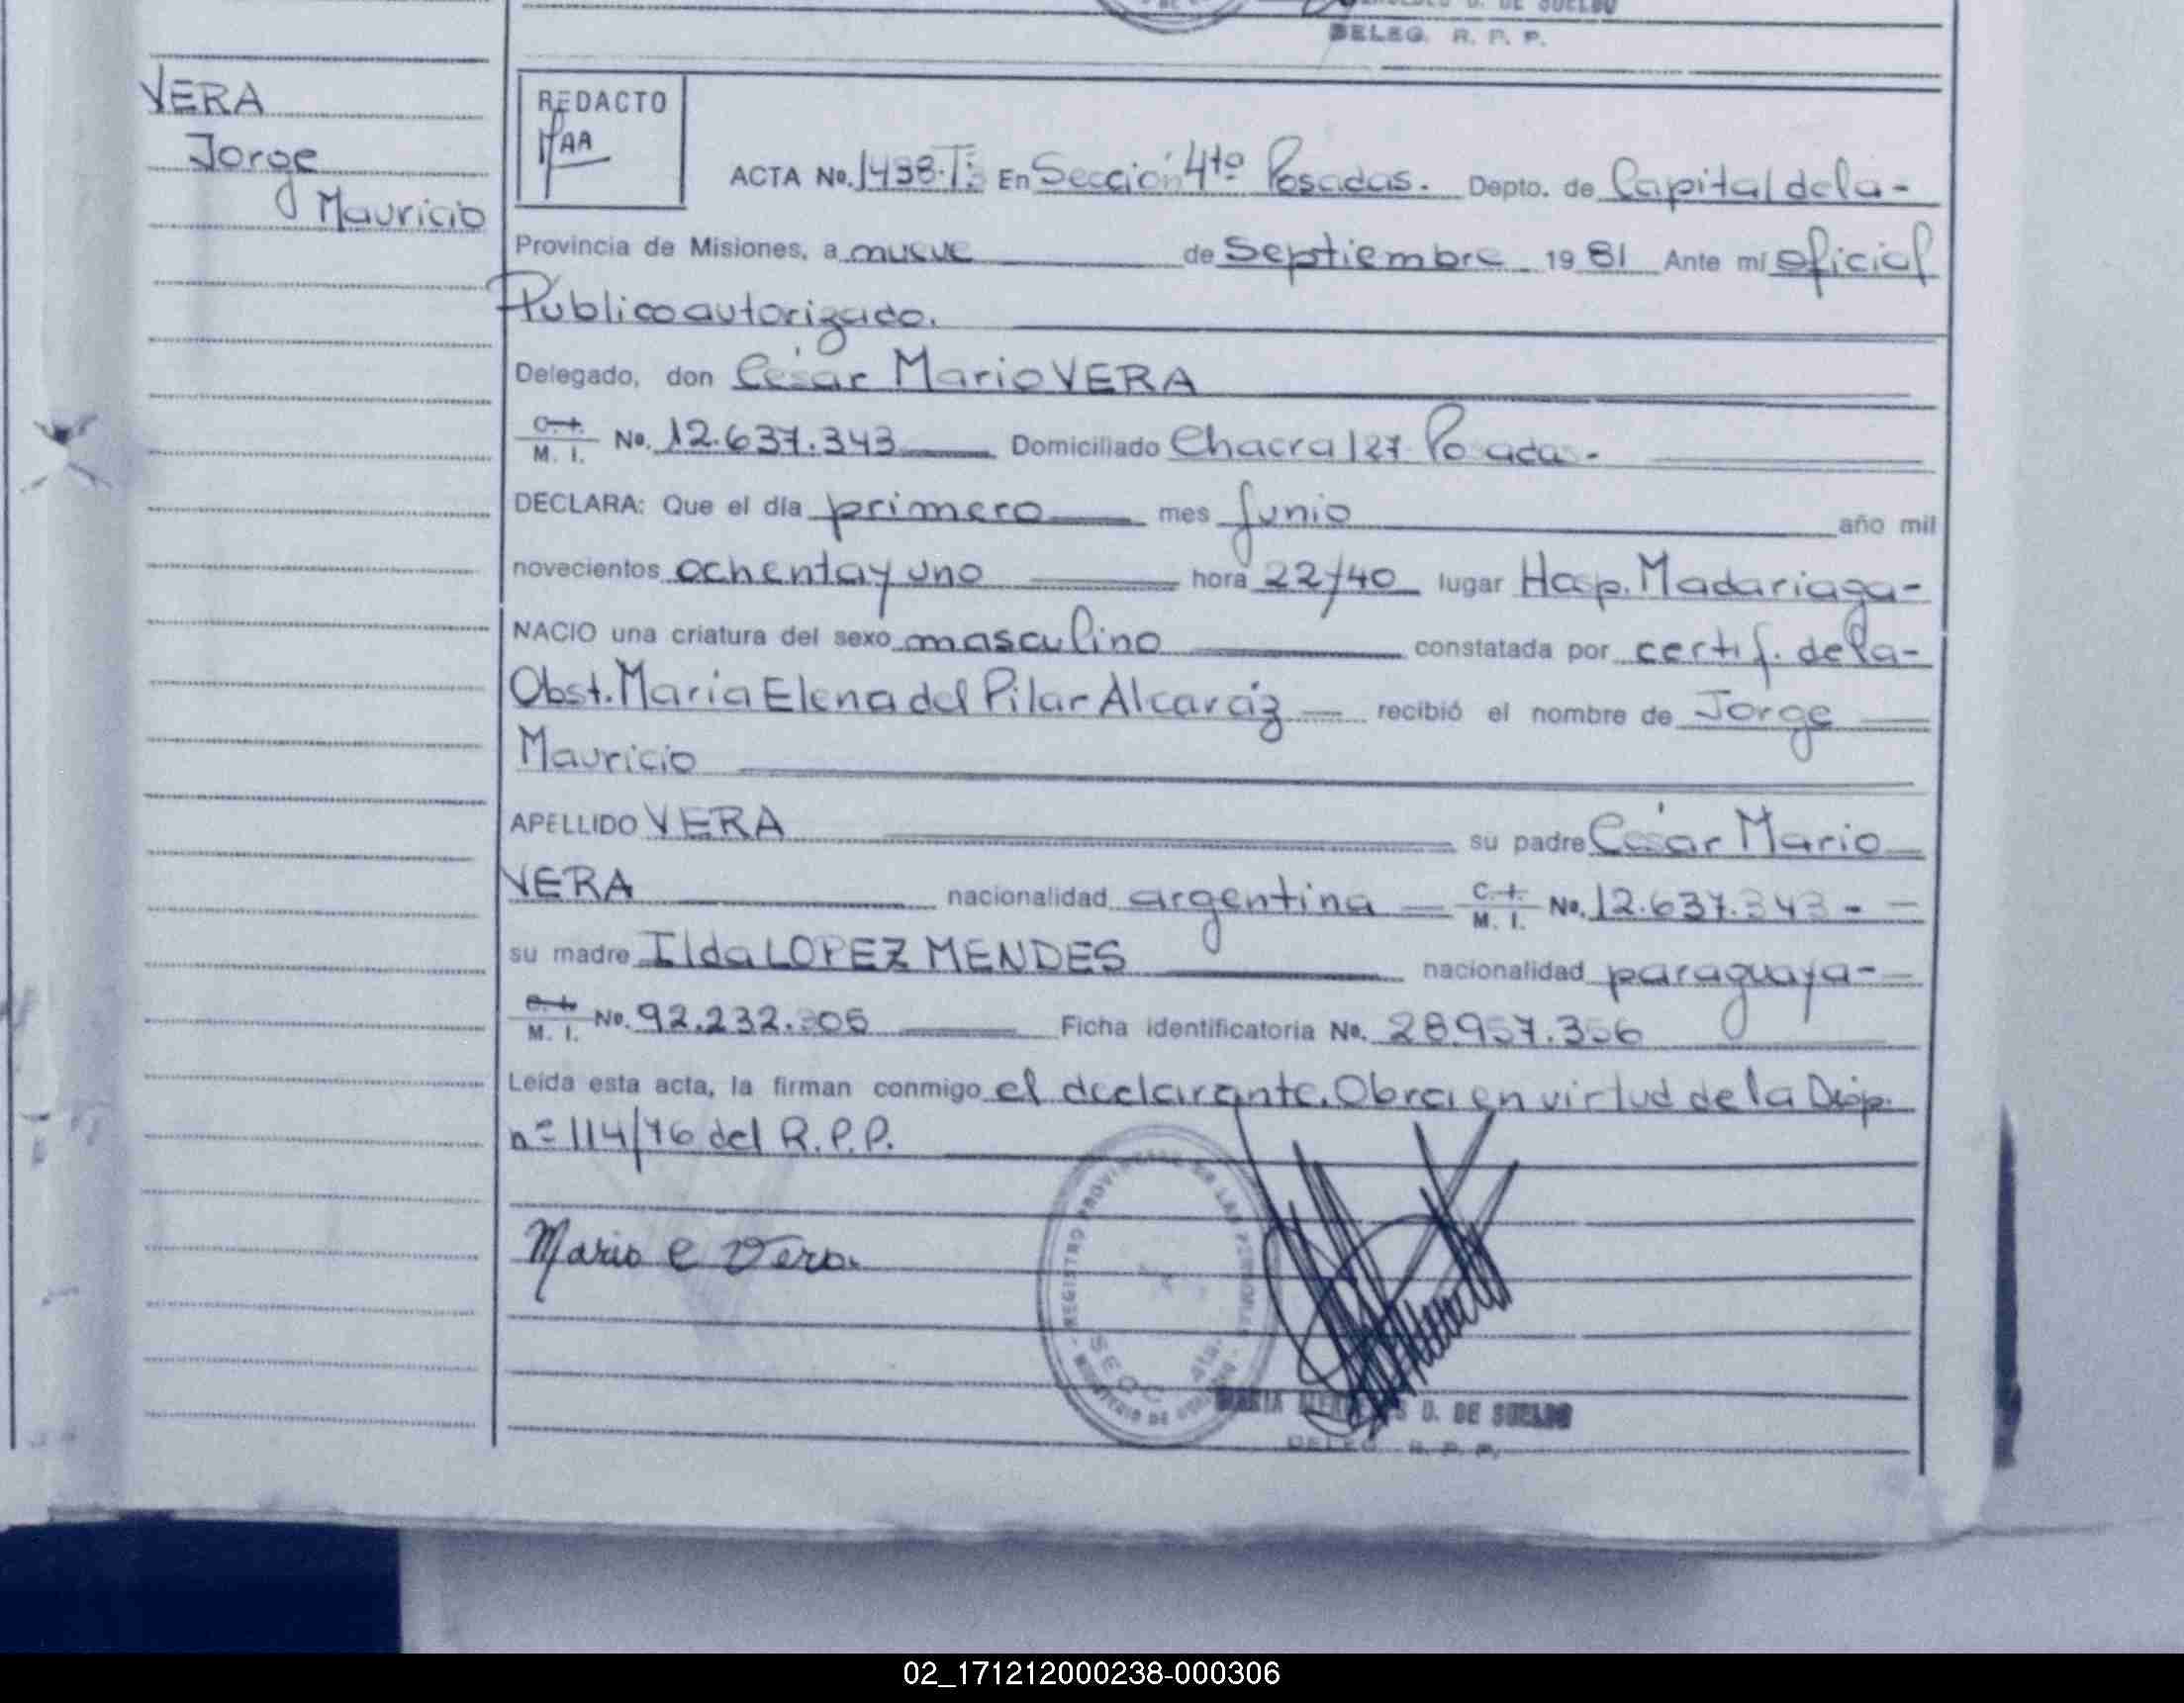 DE SUELDO
DELEG. R. P. P.
VERA
Jorge
Mauricio
REDACTO
ACTA No. 1438.T: En Sección 4tº Posadas. Depto. de Capital de la-
Provincia de Misiones, a nueve de Septiembre 1981 Ante mi oficial
Público autorizado.
Delegado, don César Mario VERA
C. I. M. I. No. 12.637.343 Domiciliado Chacra 127 Posadas-
DECLARA: Que el día primero mes Junio año mil
novecientos ochenta y uno hora 22/40 lugar Hosp. Madariaga-
NACIO una criatura del sexo masculino constatada por certif. de la-
Obst. María Elena del Pilar Alcaráz recibió el nombre de Jorge
Mauricio
APELLIDO VERA su padre César Mario
VERA nacionalidad argentina C. I. M. I. No. 12.637.343-
su madre Ilda LOPEZ MENDES nacionalidad paraguaya-
C. I. M. I. No. 92.232.305 Ficha identificatoria No. 28.957.356
Leída esta acta, la firman conmigo el declarante. Obra en virtud de la Disp.
nº 114/76 del R.P.P.
Mario C Vera
REGISTRO PROVINCIAL DE LAS PERSONAS
SECC 4ta.
MINISTERIO DE GOBIERNO
MARIA D. DE SUELDO
DELEG. R. P. P.
02_171212000238-000306